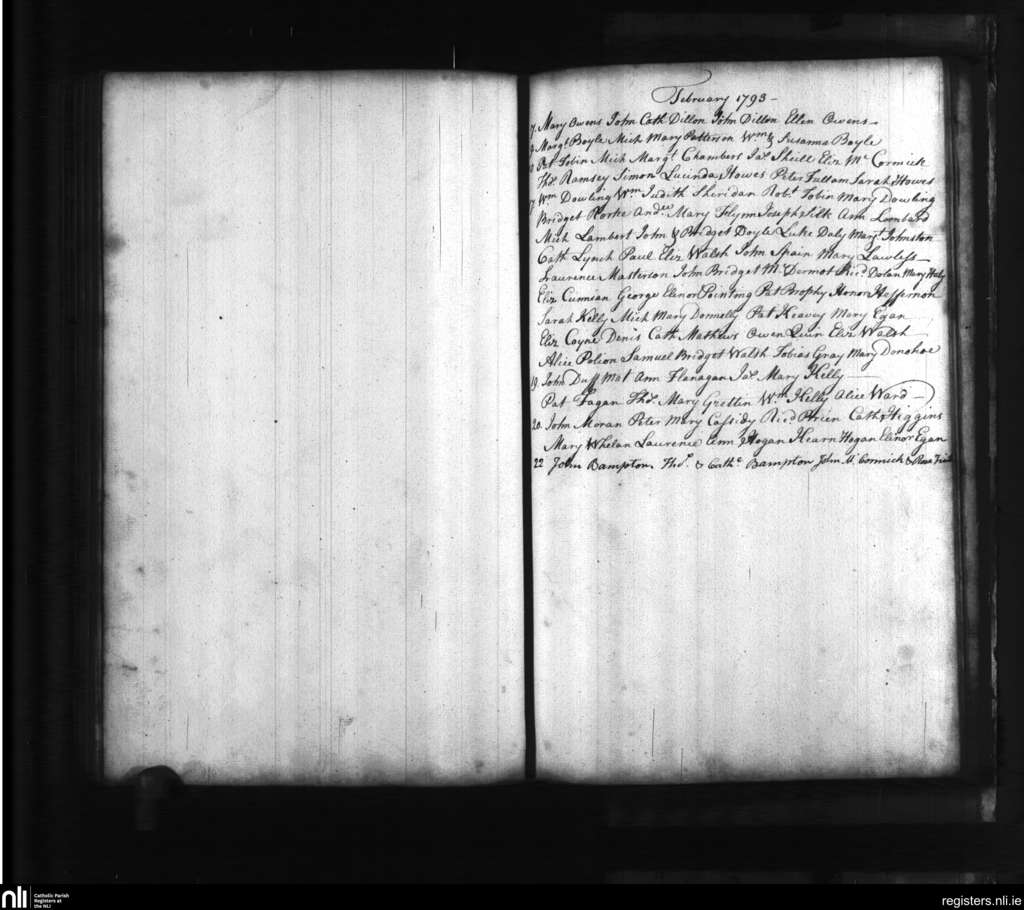 February 1793 -
7. Mary Owens John Cath Dillon John Dillon Ellen Owens
9 Margt Boyle Mich Mary Patterson Wm & Susanna Boyle
Pat Tobin Mich Margt Chambers Jas Sheill Eliz Mc Cormick
Thos Ramsey Simon Lucinda Howes Peter Fullam Sarah Howes
17 Wm Dowling Wm Judith Sheridan Robt Tobin Mary Dowling
Bridget Rorke Andw Mary Flynn Joseph Silk Ann Lombard
Mich Lambert John & Bridget Doyle Luke Daly Margt Johnston
Cath Lynch Paul Eliz Walsh John Spain Mary Lawless
Laurence Masterson John Bridget Mc Dermot Ricd Dolan Mary
Eliz Cunnian George Elenor Pointing Pat Brophy Honor Heffernon
Sarah Kelly Mich Mary Donnelly Pat Keavey Mary Egan
Eliz Coyne Denis Cath Mathews Owen Quin Eliz Walsh
Alice Polion Samuel Bridget Walsh Tobias Gray Mary Donohoe
19. John Duff Mat Ann Flanagan Jas Mary Kelly
Pat Fagan Thos Mary Grettin Wm Kelly Alice Ward
20. John Moran Peter Mary Cassidy Ricd Brien Cath Higgins
Mary Whelan Laurence Ann Hogan Kearn Hogan Elinor Egan
22 John Bampton. Thos & Cathe Bampton John Mc Cormick & Rose
nli
Catholic Parish
Registers at
the NLI
registers.nli.ie